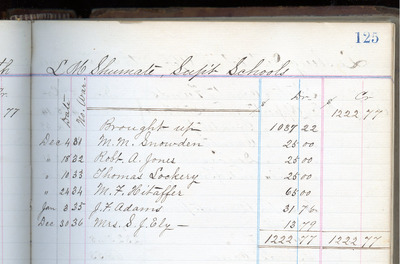 125
L M Shumate, Supt Schools
Date No. War. Dr. Cr
$ $
1222 77
Brought up 1037 22
Dec 4 31 M. M. Snowden 25 00
" 18 32 Robt. A. Jones 25 00
" 18 33 Thomas Lookery 25 00
" 24 34 M. F. Hitaffer 65 00
Jan 3 35 J. F. Adams 31 76
Dec 30 36 Mrs. S. J. Ely — 13 79
1222 77 1222 77
77